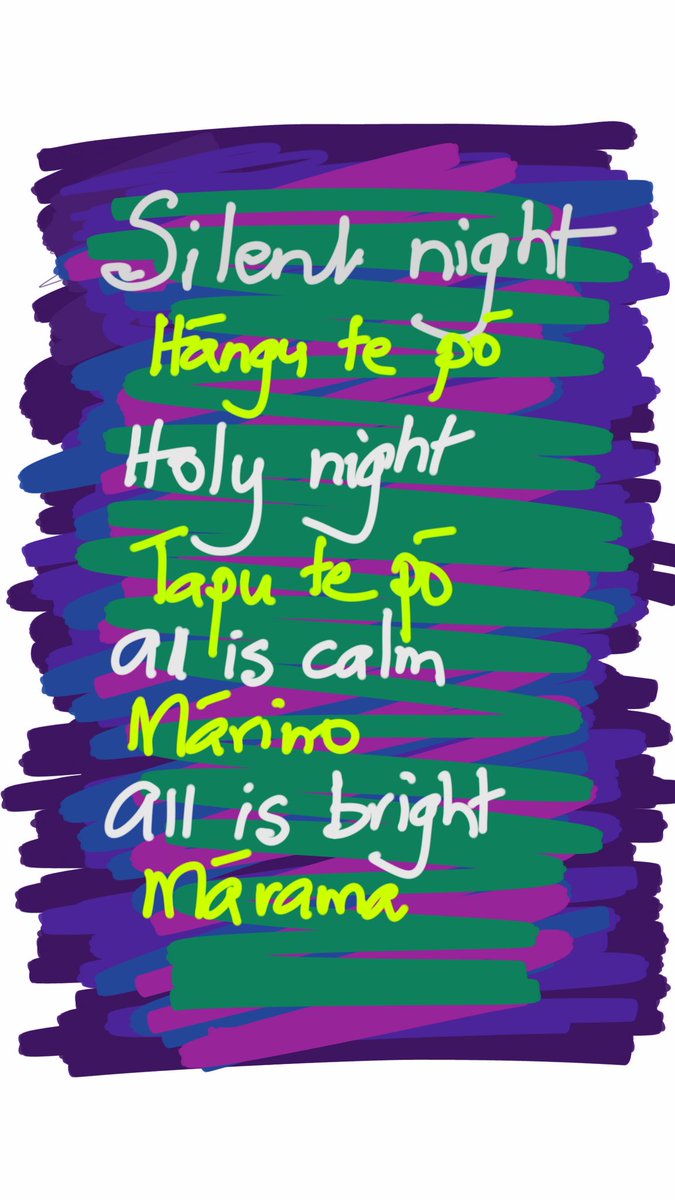 Silent night
Hāngu te pō
Holy night
Tapu te pō
All is calm
Mārino
All is bright
Mārama